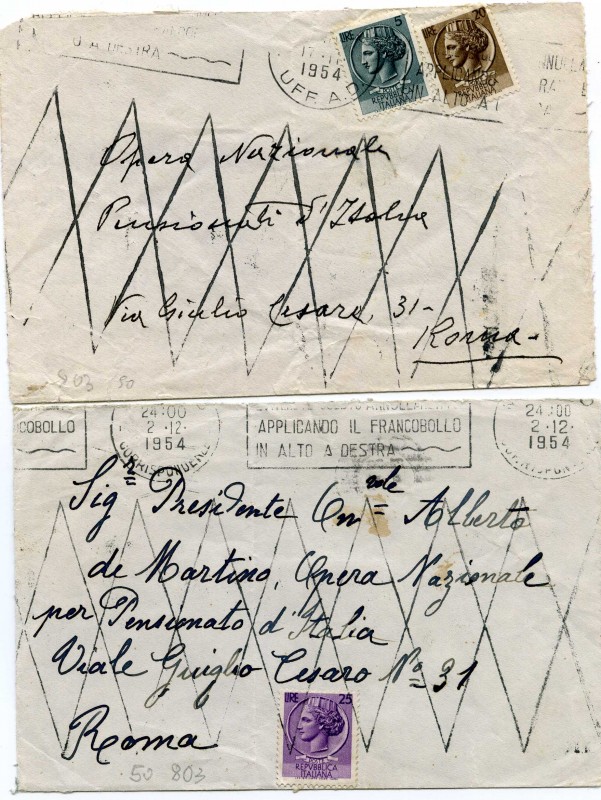 U A DESTRA
1954
UFF. A.
LIRE 5
POSTE
REPVBBLICA
ITALIANA
LIRE 20
ITALIANA
APPLICANDO
IN ALTO A
Opera Nazionale
Pensionati d'Italia
Via Giulio Cesare, 31-
Roma-
803 50
COBOLLO
24:00
2·12·
1954
CORRISPONDENZE
APPLICANDO IL FRANCOBOLLO
IN ALTO A DESTRA
24:00
2·12·
1954
Sig.r Presidente On.vole Alberto
de Martino, Opera Nazionale
per Pensionato d'Italia
Viale Guiglio Cesaro No 31
Roma
LIRE 25
POSTE
REPVBBLICA
ITALIANA
50 803